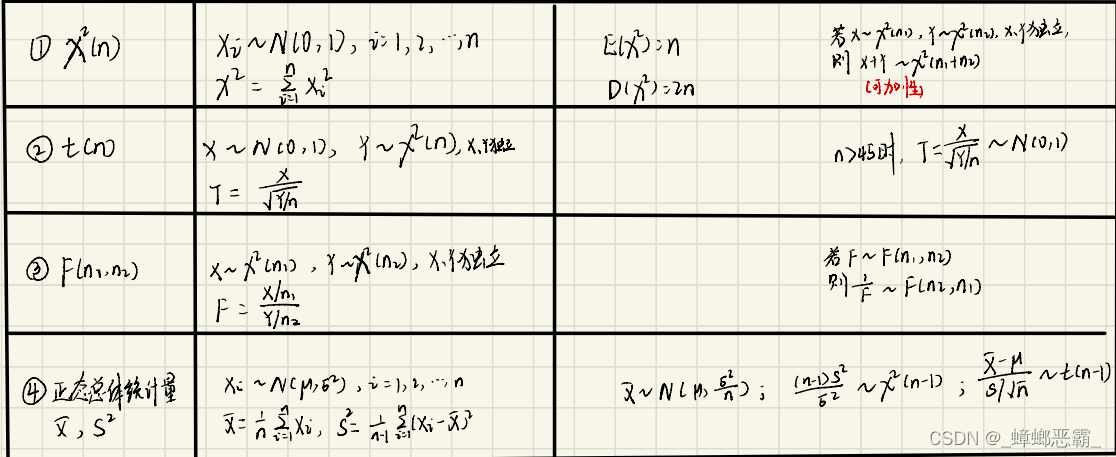 ① χ²(n)
Xi ~ N(0,1), i=1,2,…,n
χ² = Σᵢ₌₁ⁿ Xi²
E(χ²)=n
D(χ²)=2n
若X~χ²(n1), Y~χ²(n2), X、Y独立,
则 X+Y ~χ²(n1+n2)
(可加性)
② t(n)
X ~ N(0,1), Y ~ χ²(n), X、Y独立
T = X/√(Y/n)
n>45时, T = X/√(Y/n) ~ N(0,1)
③ F(n1,n2)
X ~ χ²(n1), Y~χ²(n2), X、Y独立
F = (X/n1)/(Y/n2)
若 F ~ F(n1,n2)
则 1/F ~ F(n2,n1)
④ 正态总体统计量
X̄, S²
Xi ~ N(μ,σ²), i=1,2,…,n
X̄ = 1/n Σᵢ₌₁ⁿ Xi, S² = 1/(n-1) Σᵢ₌₁ⁿ (Xi-X̄)²
X̄ ~ N(μ, σ²/n); (n-1)S²/σ² ~ χ²(n-1); (X̄-μ)/(S/√n) ~ t(n-1)
CSDN @_蟑螂恶霸_